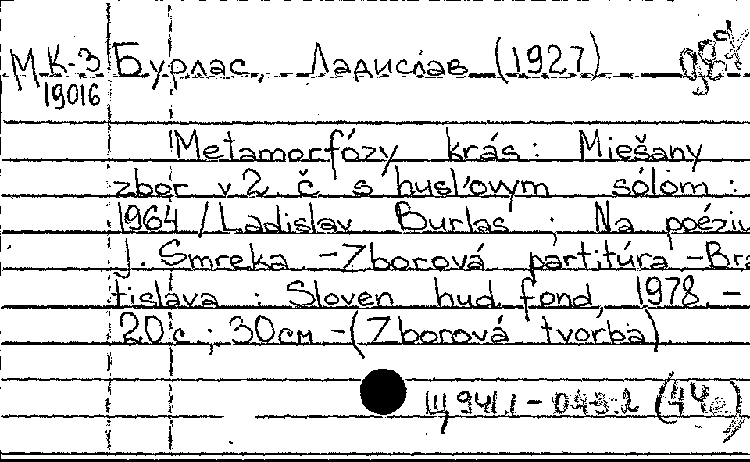 МК-3 Бурлас, Ладислав (1927)
19016
Metamorfózy krás : Miešany
zbor v 2 č s husľovym sólom :
1964 / Ladislav Burlas ; Na poéziu
J. Smreka. - Zborová partitúra - Bra
tislava : Sloven hud. fond, 1978. -
20 с. ; 30 см - (Zborová tvorba)
Щ 941.1 - 043.2